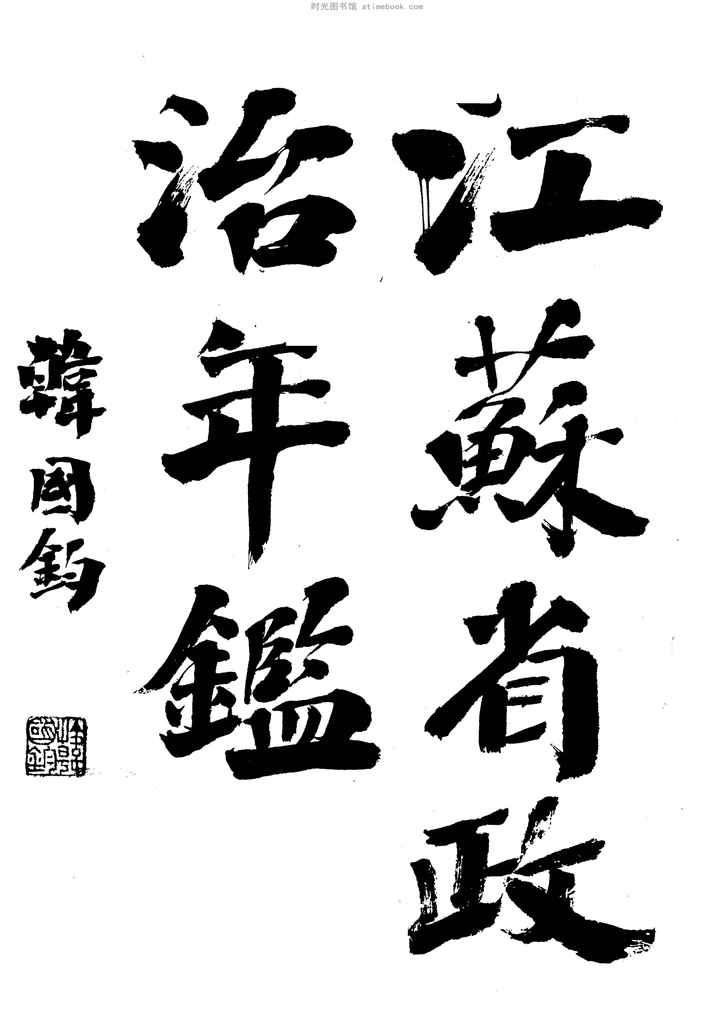 时光图书馆 atimebook.com
江蘇省政
治年鑑
韓國鈞